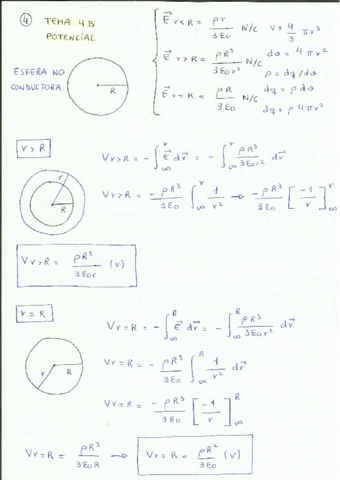 ④ TEMA 4B
POTENCIAL
ESFERA NO
CONDUCTORA
R
E⃗ r<R = ρr / 3ε₀ N/C   V = 4/3 πr³
E⃗ r>R = ρR³ / 3ε₀r² N/C   dv = 4πr²
ρ = dq/dv
E⃗ r=R = ρR / 3ε₀ N/C   dq = ρdv
dq = ρ4πr²
r>R
Vr>R = - ∫∞^r E⃗ dr⃗ = - ∫∞^r ρR³ / 3ε₀r² dr⃗
r
R
Vr>R = -ρR³ / 3ε₀ ∫∞^r 1/r² → -ρR³ / 3ε₀ [-1/r]∞^r
Vr>R = ρR³ / 3ε₀r (v)
r=R
Vr=R = - ∫∞^R E⃗ dr⃗ = - ∫∞^R ρR³ / 3ε₀r² dr⃗
r R
Vr=R = - ρR³ / 3ε₀ ∫∞^R 1/r² dr⃗
Vr=R = -ρR³ / 3ε₀ [-1/r]∞^R
Vr=R = ρR³ / 3ε₀R → Vr=R = ρR² / 3ε₀ (v)